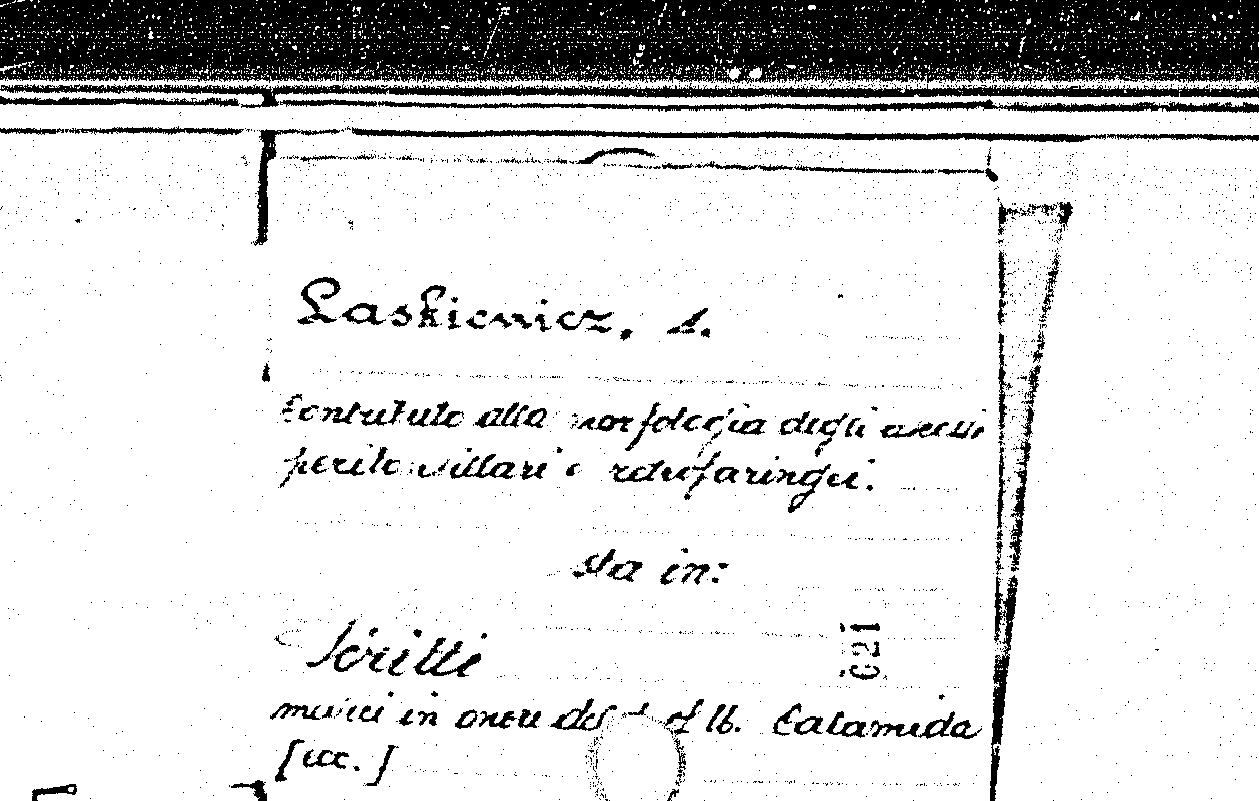 Laskiewicz, A.
Contributo alla morfologia degli ascessi
peritonsillari e retrofaringei.
sta in:
Scritti
medici in onore del U. Calamida
[ecc.]
621